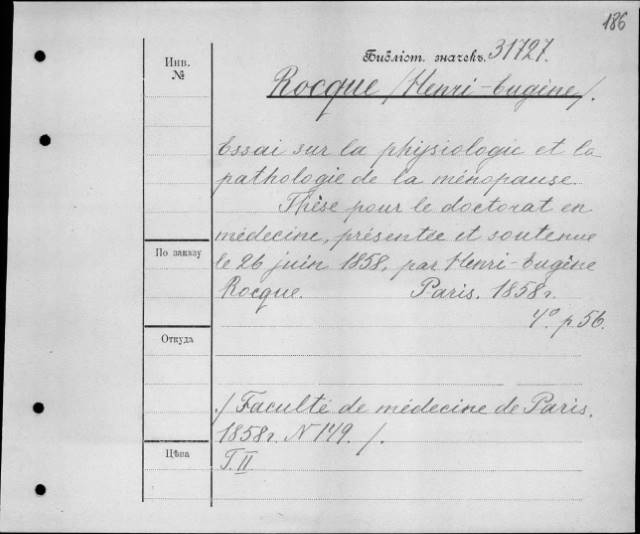 186
Инв.
№
Библіот. значекъ. 31727.
Rocque /Henri-Eugène/.
Essai sur la physiologie et la
pathologie de la ménopause.
Thèse pour le doctorat en
médecine, présentée et soutenue
По заказу
le 26 juin 1858, par Henri-Eugène
Rocque. Paris. 1858г.
4º. p 56.
Откуда
/Faculté de médecine de Paris.
1858г. N 149. /.
Цѣна
T. II